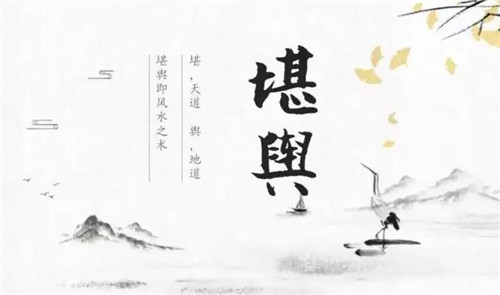 堪舆
堪，天道 舆，地道
堪舆即风水之术